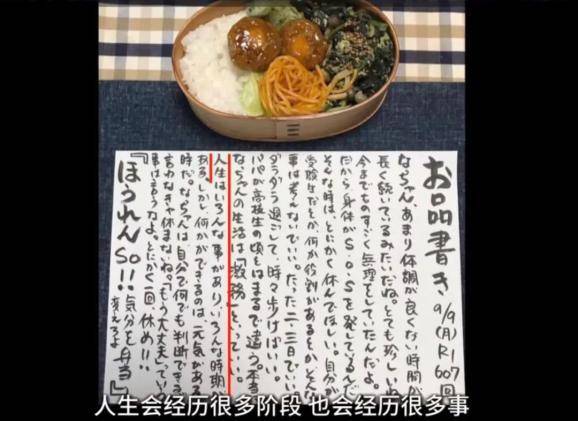 お品書き 9/9(月) R1 607回
なっちゃん、あまり体調が良くない時間が
長く続いているみたいだね。とても珍しい。
今までものすごく無理をしていたんだよ。
だから身体がS.O.Sを発しているんだ
そんな時は、とにかく休んでほしい。自分が
受験生だとか、何か役割があるとかそんな
事は考えないでいい。たった二、三日でいい
ダラダラ過ごして、時々歩けばいい。
パパが高校生の頃とはまるで違う。本当
なっちゃんの生活は「激務」といっていい。
人生はいろんな事があり、いろんな時期が
ある。しかし、何かができるのは、元気がある
時だ。なっちゃんは、自分で何でも判断できる
なきゃ休まないね。「もう大丈夫」ってい
とにかく一回休め!!
『ほうれんSO!!気分を弁当』
変えろよ
人生会经历很多阶段 也会经历很多事